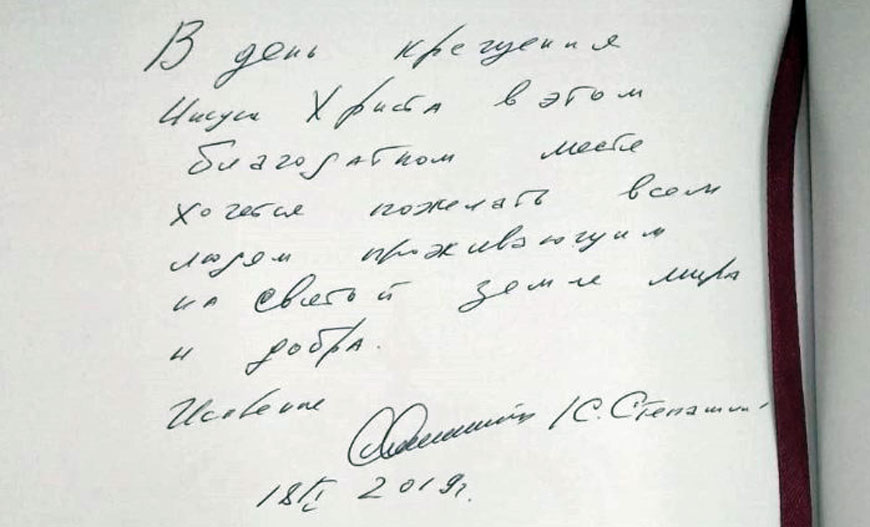 В день крещения
Иисуса Христа в этом
благодатном месте
хочется пожелать всем
людям проживающим
на святой земле мира
и добра.
Искренне
/С. Степашин/
18/I 2019г.